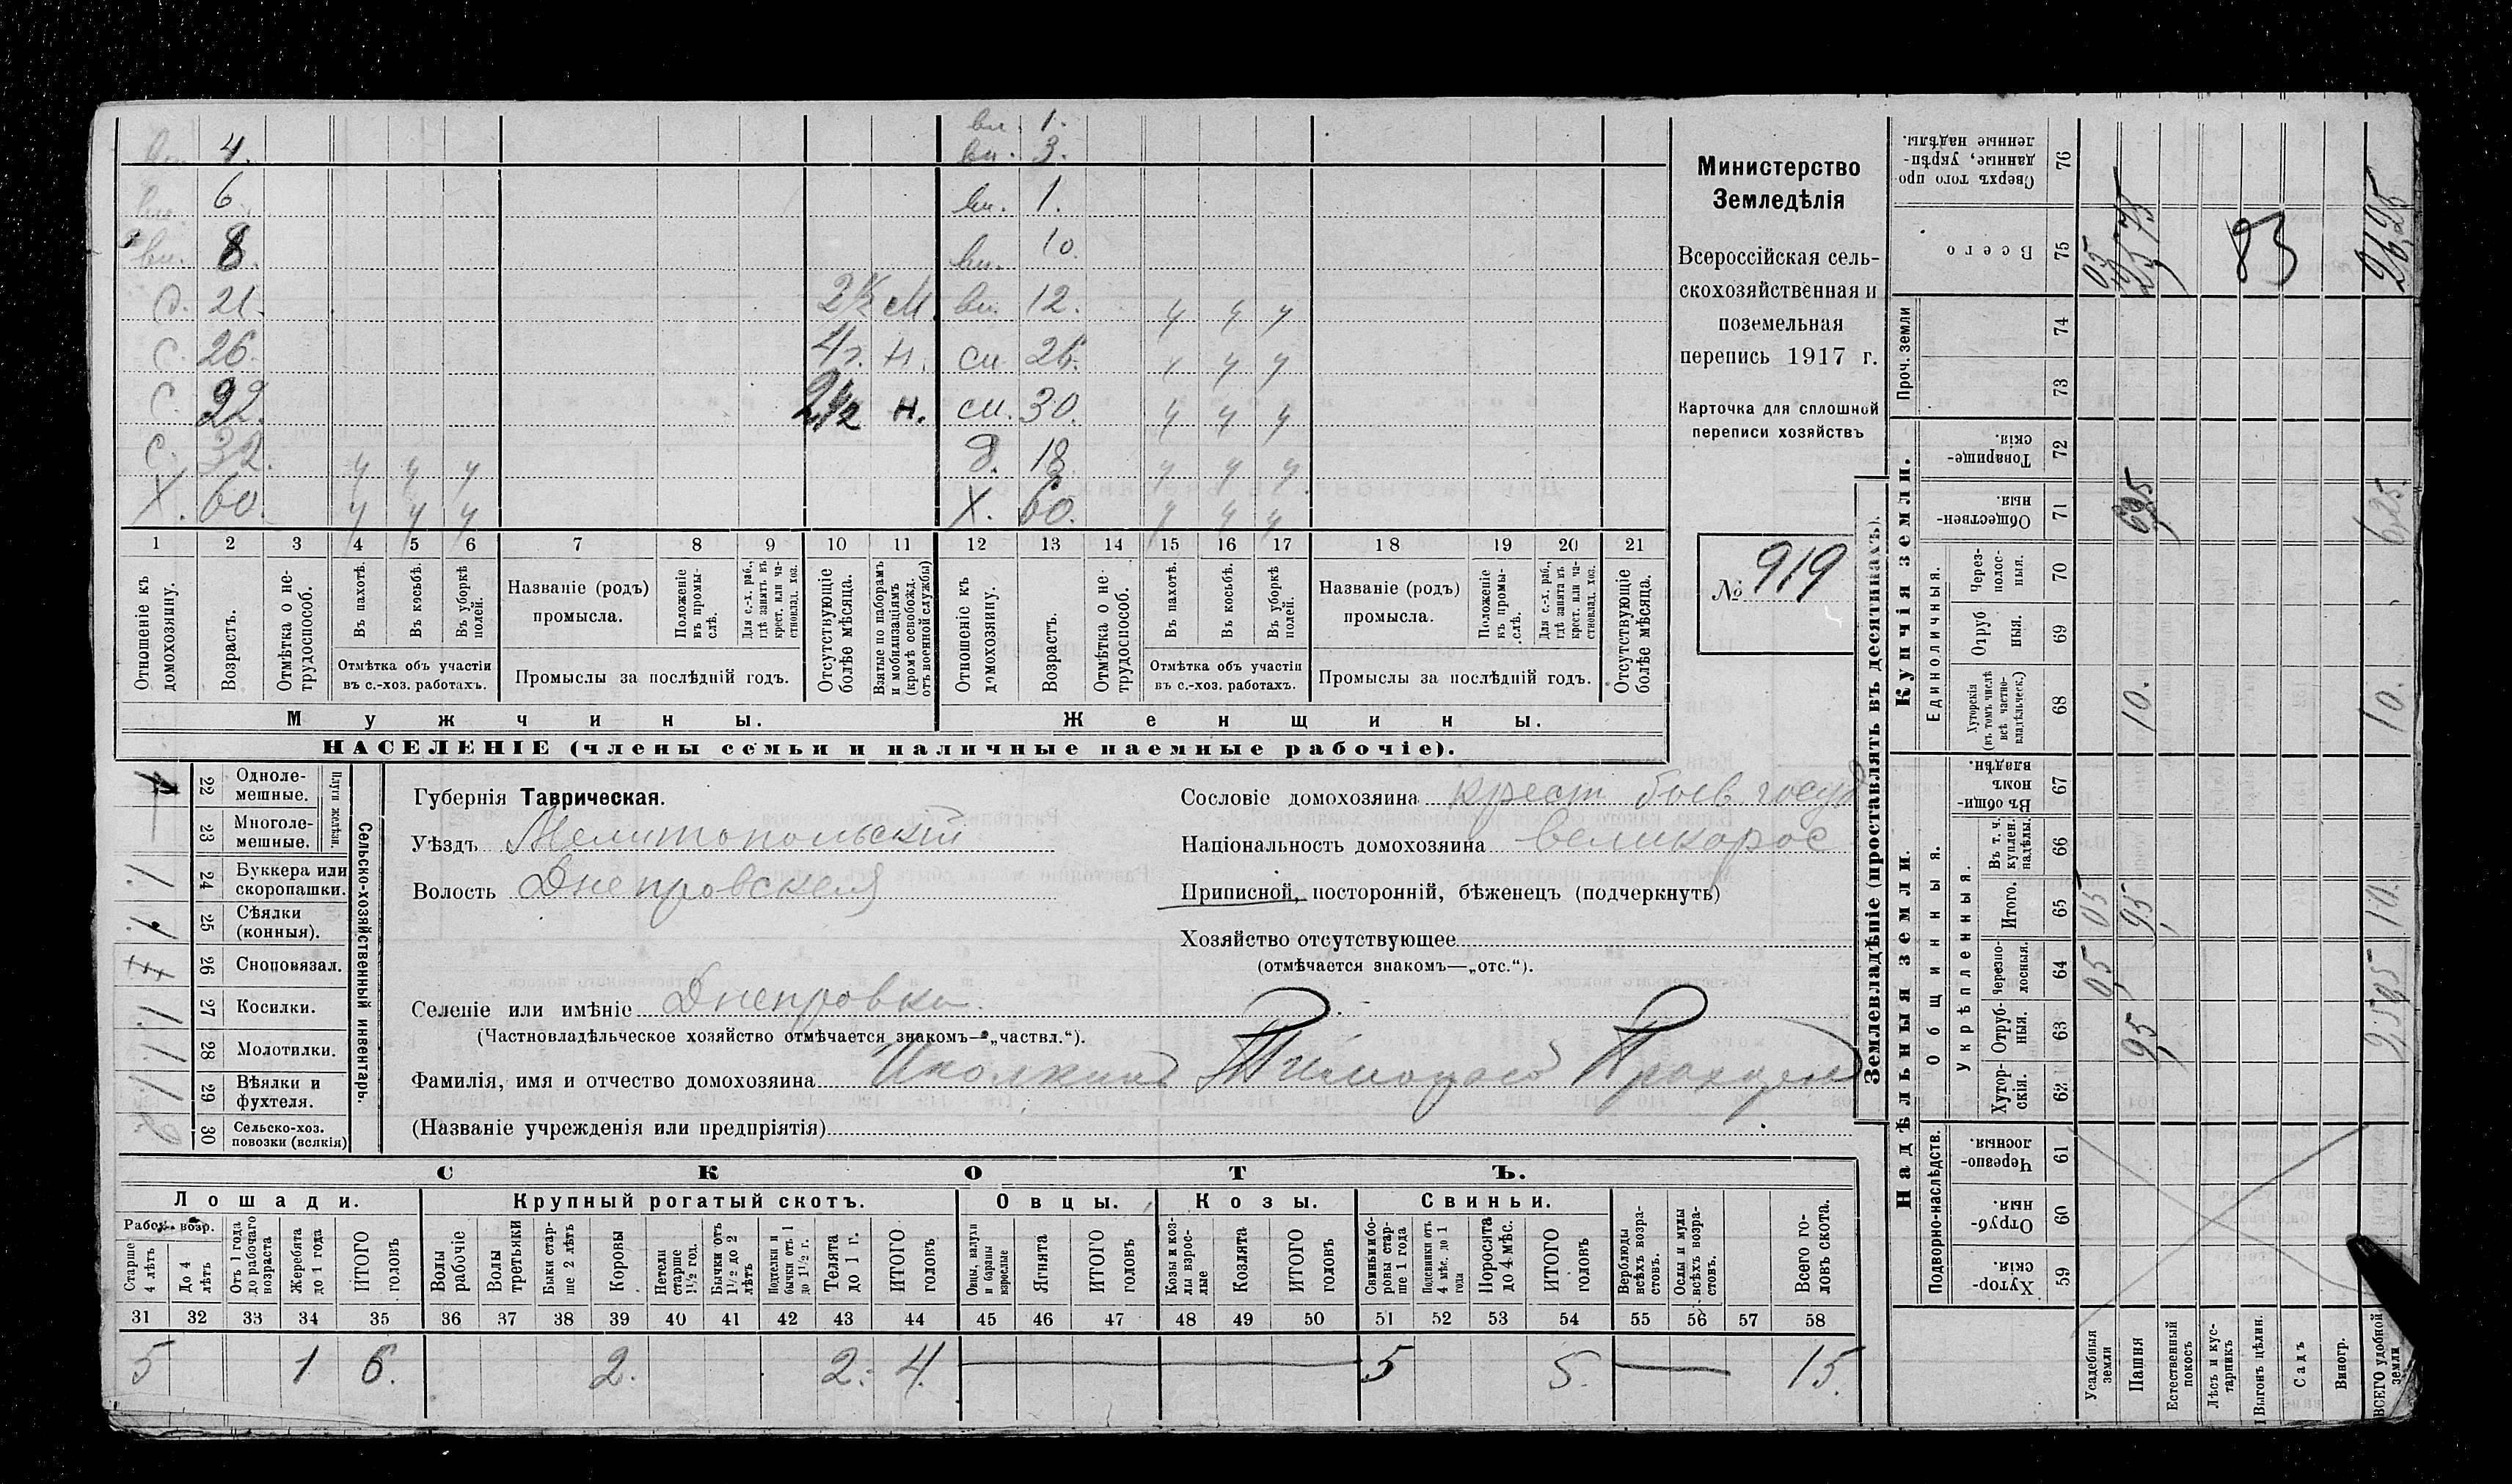 вн. 1.
вн. 4. вн. 3.
вн. 6. вн. 1.
вн. 8. вн. 10.
д. 21. 2½ М. вн. 12. ч ч ч
с. 26. 4 г. н. сн. 26. ч ч ч
с. 22. 2½ н. сн. 30. ч ч ч
с. 32. ч ч ч д. 18 ч ч ч
Х. 60. ч ч ч Х. 60. ч ч ч
1 2 3 4 5 6 7 8 9 10 11 12 13 14 15 16 17 18 19 20 21
Отношеніе къ домохозяину.
Возрастъ.
Отмѣтка о не-трудоспособ.
Въ пахотѣ.
Въ косьбѣ.
Въ уборкѣ полей.
Отмѣтка объ участіи
въ с.-хоз. работахъ.
Названіе (родъ)
промысла.
Положеніе въ промы-слѣ.
Для с.-х. раб., гдѣ занятъ въ крест. или ча-стновлад. хоз.
Промыслы за послѣдній годъ.
Отсутствующіе болѣе мѣсяца.
Взятые по наборамъ и мобилизаціямъ (кромѣ освобожд. отъ военной службы)
Отношеніе къ домохозяину.
Возрастъ.
Отмѣтка о не-трудоспособ.
Въ пахотѣ.
Въ косьбѣ.
Въ уборкѣ полей.
Отмѣтка объ участіи
въ с.-хоз. работахъ.
Названіе (родъ)
промысла.
Положеніе въ промы-слѣ.
Для с.-х. раб., гдѣ занята въ крест. или ча-стновлад. хоз.
Промыслы за послѣдній годъ.
Отсутствующіе болѣе мѣсяца.
Мужчины. Женщины.
НАСЕЛЕНІЕ (члены семьи и наличные наемные рабочіе).
Министерство
Земледѣлія
Всероссійская сель-
скохозяйственная и
поземельная
перепись 1917 г.
Карточка для сплошной
переписи хозяйствъ
№ 919
Сельско-хозяйственный инвентарь.
Плуги желѣзн.
22 Одноле-
мешные.
23 Многоле-
мешные.
24 Буккера или
скоропашки.
1
25 Сѣялки
(конныя).
1
26 Сноповязал.
27 Косилки.
1
28 Молотилки.
1
29 Вѣялки и
фухтеля.
1
30 Сельско-хоз.
повозки (всякія)
Губернія Таврическая.
Уѣздъ Мелитопольскій
Волость Днепровская
Селеніе или имѣніе Днепровка.
(Частновладѣльческое хозяйство отмѣчается знакомъ—„частвл.“).
Сословіе домохозяина крест бывъ госуд
Національность домохозяина великорос
Приписной, посторонній, бѣженец (подчеркнуть)
Хозяйство отсутствующее
(отмѣчается знакомъ—„отс.“).
Фамилія, имя и отчество домохозяина
(Названіе учрежденія или предпріятія)
СКОТЪ.
Лошади. Крупный рогатый скотъ. Овцы. Козы. Свиньи.
Рабоч. возр.
Старше 4 лѣтъ
До 4 лѣтъ
Отъ 1 года до рабочаго возраста
Жеребята до 1 года
ИТОГО головъ
Волы рабочіе
Волы третьяки
Быки стар-ше 2 лѣтъ
Коровы
Нетели старше 1½ год.
Бычки отъ 1½ до 2 лѣтъ
Подтелки и бычки отъ 1 до 1½ г.
Телята до 1 г.
ИТОГО головъ
Овцы, валухи и бараны взрослые
Ягнята
ИТОГО головъ
Козы и коз-лы взрос-лые
Козлята
ИТОГО головъ
Свиньи и бо-ровы стар-ше 1 года
Подсвинки отъ 4 мѣс. до 1 года
Поросята до 4 мѣс.
ИТОГО головъ
Верблюды всѣхъ возра-стовъ.
Ослы и мулы всѣхъ возра-стовъ.
Всего го-ловъ скота.
31 32 33 34 35 36 37 38 39 40 41 42 43 44 45 46 47 48 49 50 51 52 53 54 55 56 57 58
5 1 6. 2. 2. 4. 5 5. 15.
Землевладѣніе (проставлять въ десятинахъ).
Надѣльныя земли. Купчія земли. Проч. земли
Подворно-наслѣдств.
Общинныя.
Укрѣпленныя.
Единоличныя.
Хутор-скія. 59
Отруб-ныя. 60
Черезпо-лосныя. 61
Хутор-скія. 62
Отруб-ныя. 63
Черезпо-лосныя. 64
Итого. 65
Въ т. ч. куплен. надѣлы. 66
Въ общи-номъ владѣн. 67
Хуторскія (въ томъ числѣ всѣ частно-владѣльческ.) 68
Отруб ныя. 69
Через-полос-ныя. 70
Обществен-ныя 71
Товарище-скія. 72
73
74
Всего 75
Сверхъ того про-данные, укрѣп-ленные надѣлы. 76
Усадебныя земли 05 05 05
Пашня 95 95 10. 625
Естественный покосъ
Лѣсъ и кус-тарникъ
Выгонъ цѣлин.
83
Садъ
Виногр.
ВСЕГО удобной земли 10. 10. 625. 26,25